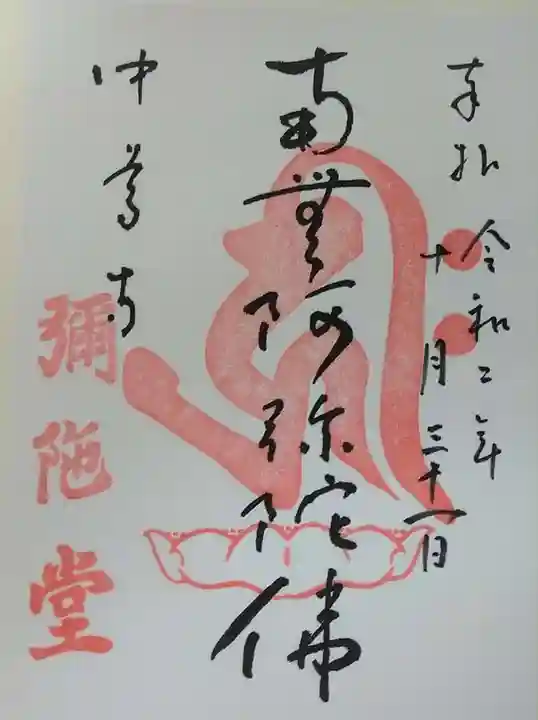 奉拝 令和二年
十月三十一日
南無阿弥陀佛
中尊寺
彌陀堂